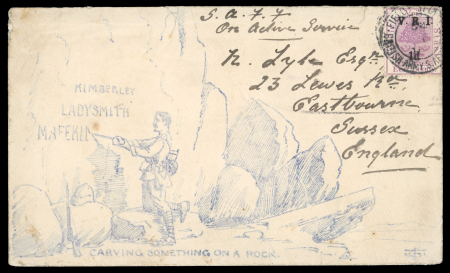 S. A. F. F
On Active Service
N. Lyle Esqre
23 Lewes Rd
Eastbourne
Sussex
England
V. R. I.
1d
KIMBERLEY
LADYSMITH
MAFEKIN
CARVING SOMETHING ON A ROCK.